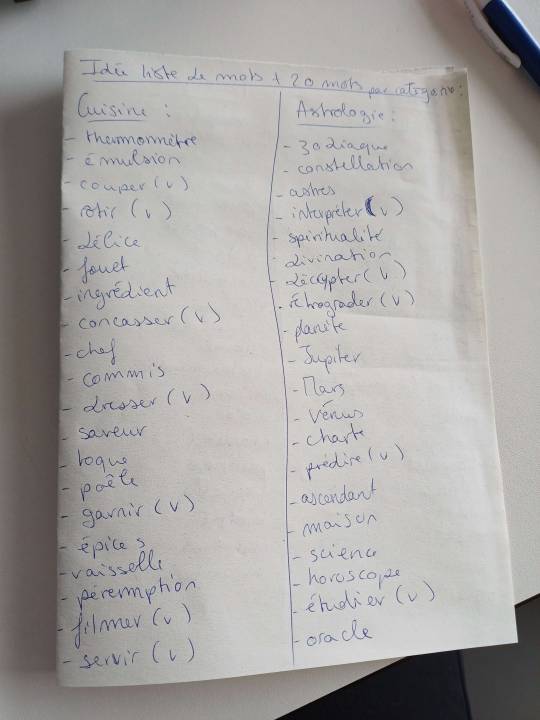 Idée liste de mots + 20 mots par catégorie :
Cuisine :
- thermomètre
- émulsion
- couper (v)
- rôtir (v)
- délice
- fouet
- ingrédient
- concasser (v)
- chef
- commis
- dresser (v)
- saveur
- toque
- poêle
- garnir (v)
- épices
- vaisselle
- péremption
- filmer (v)
- servir (v)
Astrologie :
- zodiaque
- constellation
- astres
- interpréter (v)
- spiritualité
- divination
- décrypter (v)
- rétrograder (v)
- planète
- Jupiter
- Mars
- Vénus
- charte
- prédire (v)
- ascendant
- maison
- science
- horoscope
- étudier (v)
- oracle